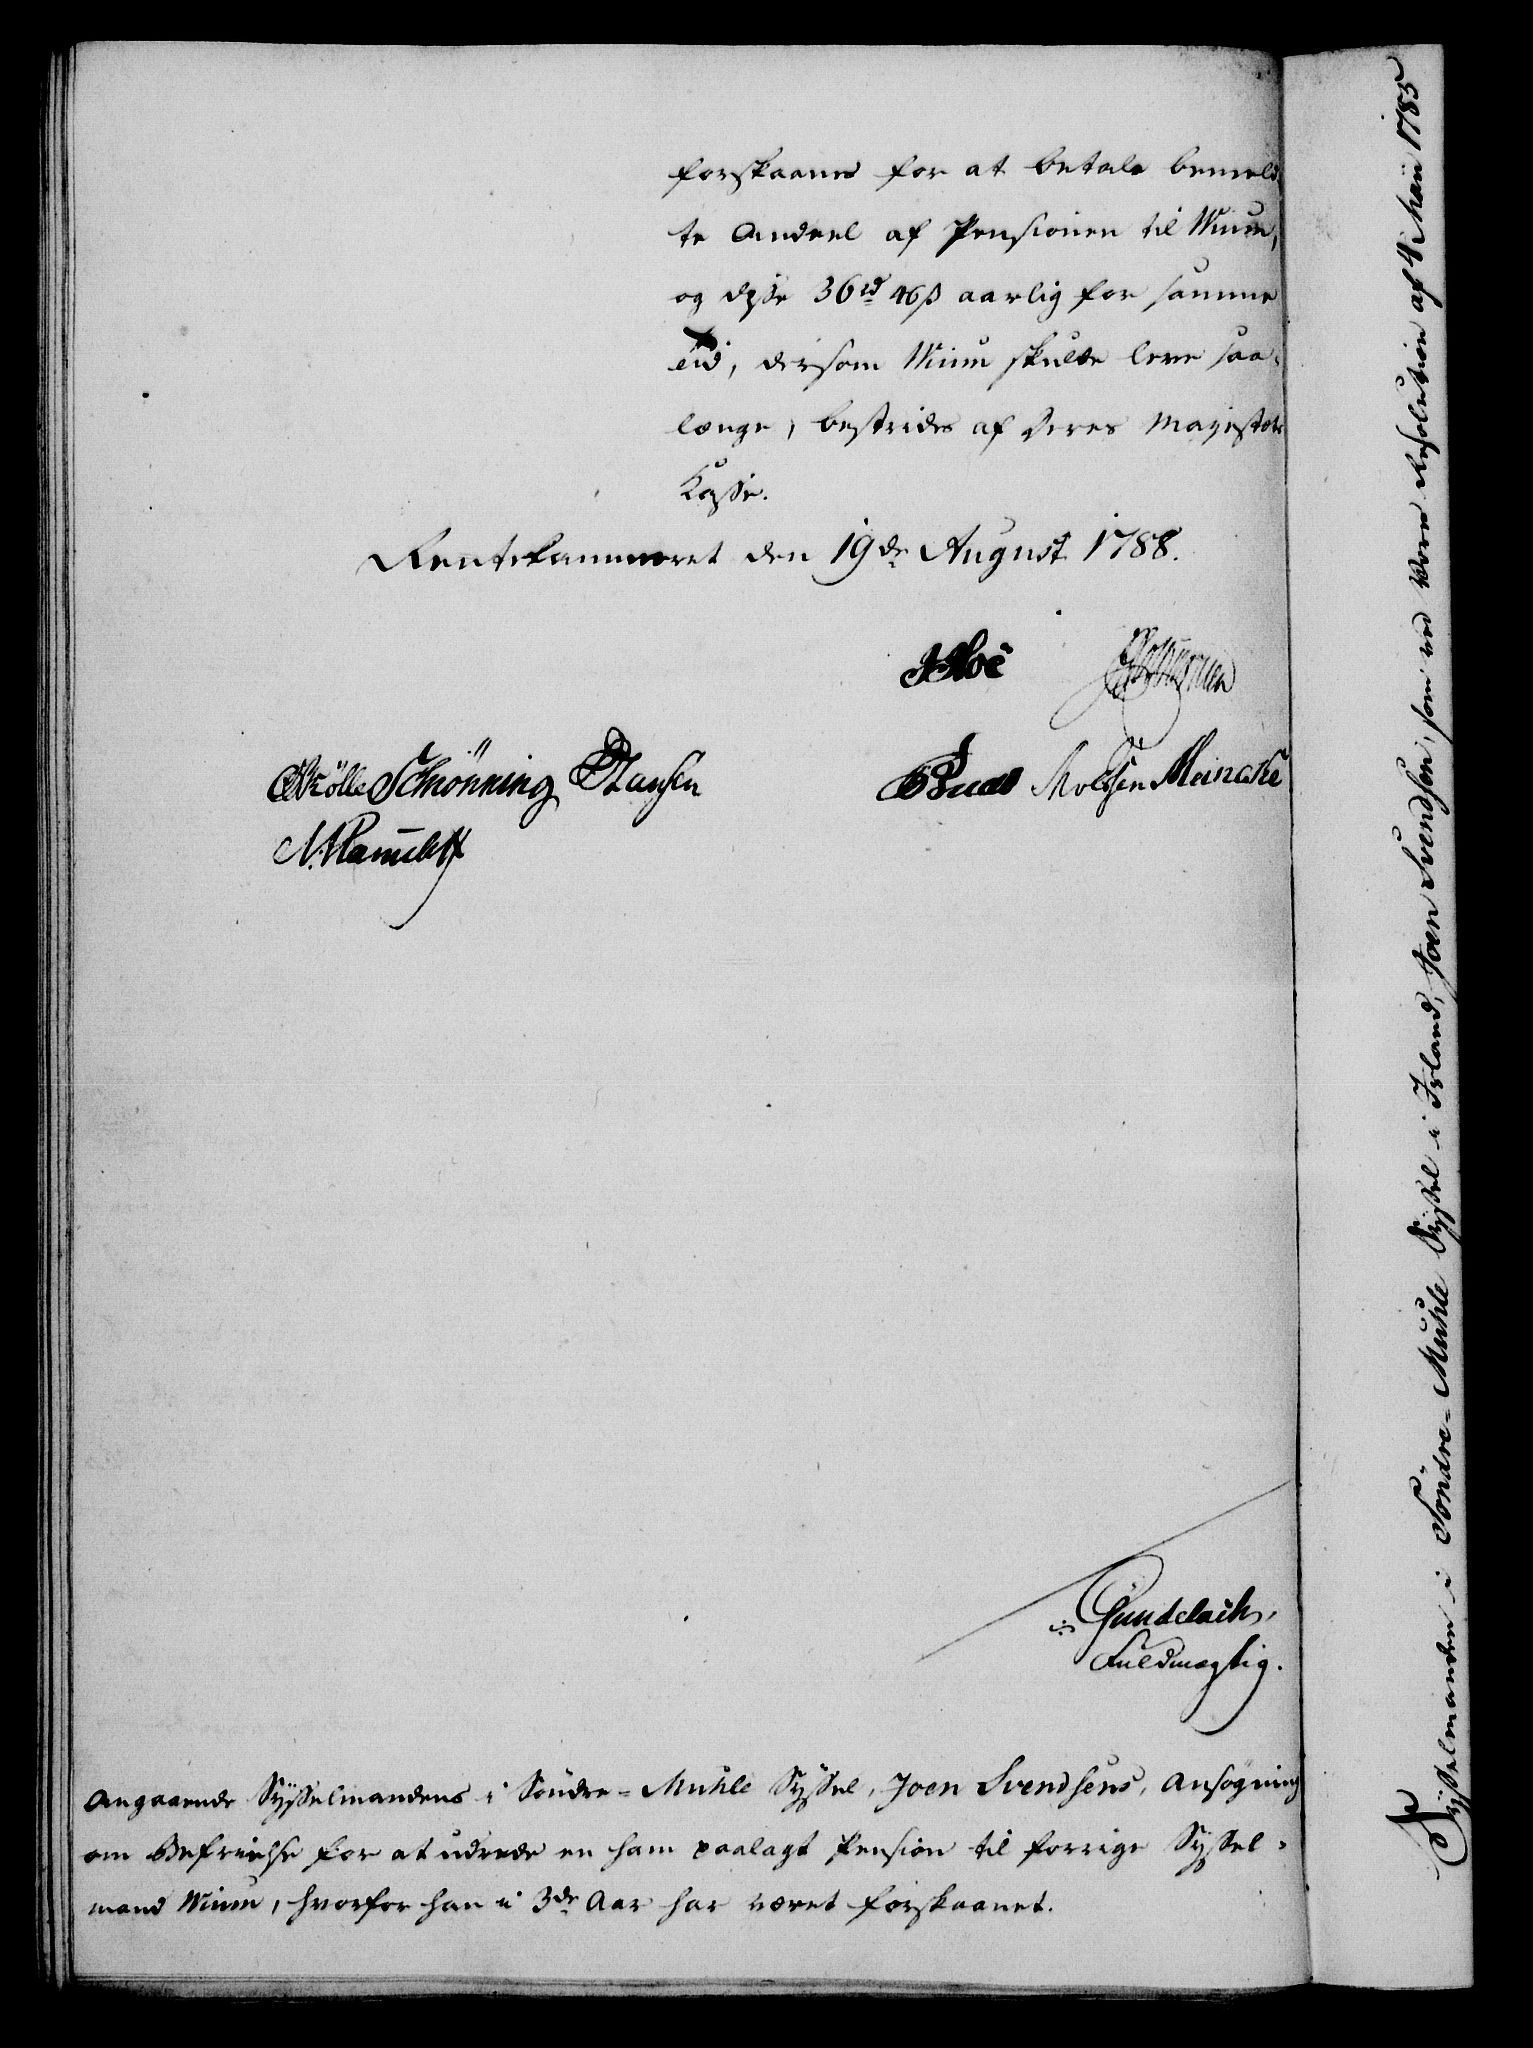 forskaanes for at betale bemeld-
te Andeel af Pensionen til Wium,
og disse 36 rd 46 ß aarlig for samme
Tid, dersom Wium skulde leve saa-
længe, bestrides af Deres Majestæts
Kasse.
Rentekammeret den 19de August 1788.
Schiönning Hansen Meincke
Gundelach,
Fuldmægtig.
Angaaende Sysselmandens i Söndre-Muhle Syssel, Joen Svendsens, Ansøgning
om Befrielse for at udrede en ham paalagt Pension til forrige Syssel-
mand Wium, hvorfor han i 3de Aar har været forskaanet.
Sysselmanden i Söndre-Muhle Syssel i Island, Joen Svendsen, som ved Vores Resolution af 4 Maii 1785